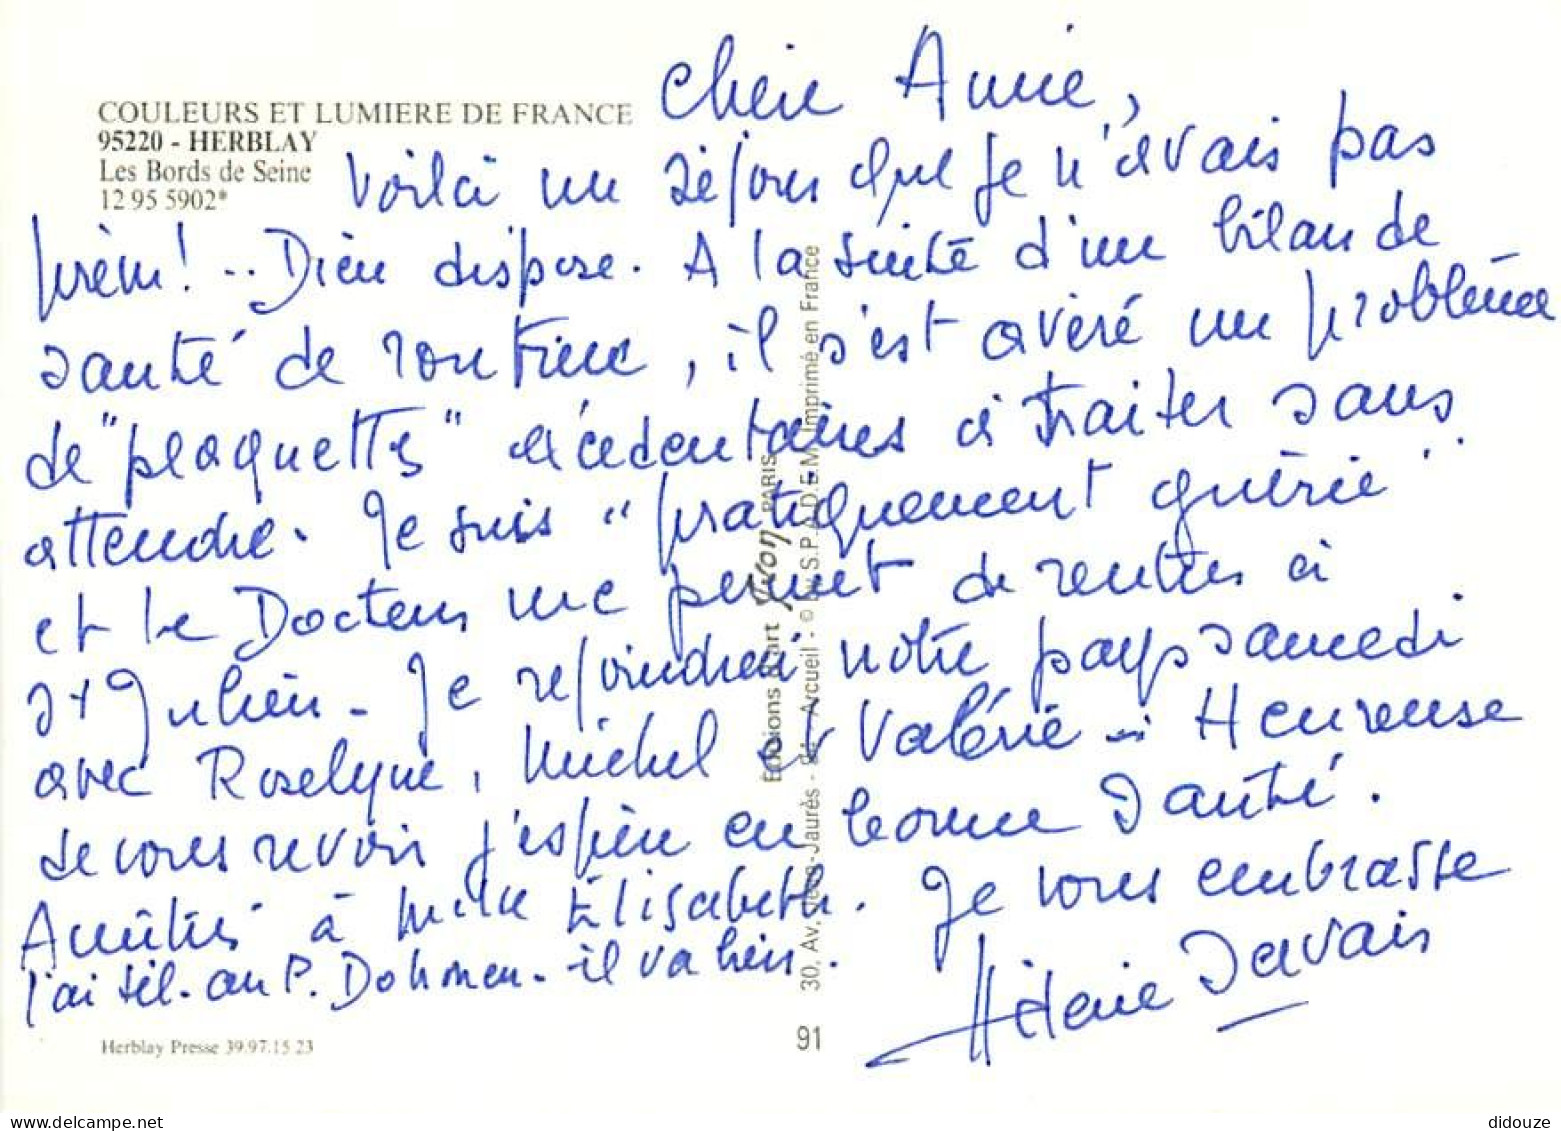 COULEURS ET LUMIERE DE FRANCE
95220 - HERBLAY
Les Bords de Seine
12 95 5902*
Chère Annie,
Voilà un séjour que je n'avais pas
prévu! .. Dieu dispose. A la suite d'un bilan de
santé de routine, il s'est avéré un problème
de "plaquettes" excédentaires à traiter sans
attendre. Je suis "pratiquement guérie"
et le Docteur me permet de rentrer à
St Julien - Je rejoindrai notre pays samedi
avec Roselyne, Michel et Valérie - Heureuse
de vous revoir j'espère en bonne santé.
Amitiés à Melle Elisabeth. Je vous embrasse
J'ai tél. au P. Dohmen - il va bien.
Hélène Savais
Editions d'art Yvon PARIS
30, Av. Jean-Jaurès - Arcueil - © by S.P.A.D.E.M. Imprimé en France
91
Herblay Presse 39.97.15.23
www.delcampe.net
didouze